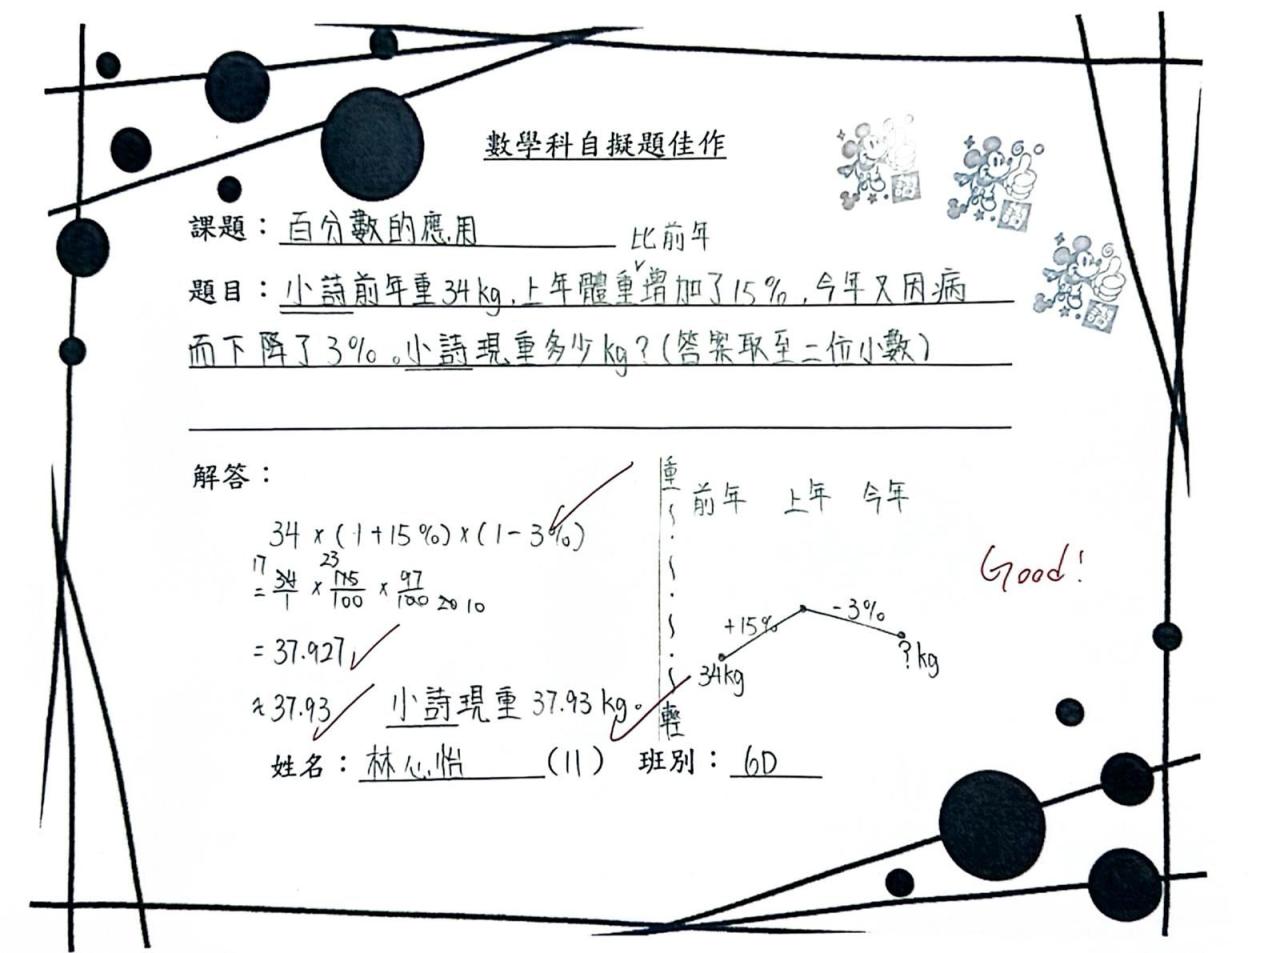 數學科自擬題佳作
課題：百分數的應用
比前年
題目：小詩前年重34kg，上年體重增加了15%，今年又因病
而下降了3%。小詩現重多少kg？(答案取至二位小數)
解答：
重 前年 上年 今年
34 × (1+15%) × (1-3%)
17 23
= 34/1 × 115/100 × 97/100 20 10
= 37.927
≈ 37.93 小詩現重 37.93 kg。
+15% -3%
34kg ?kg
輕
Good!
姓名：林心怡 (11) 班別：6D